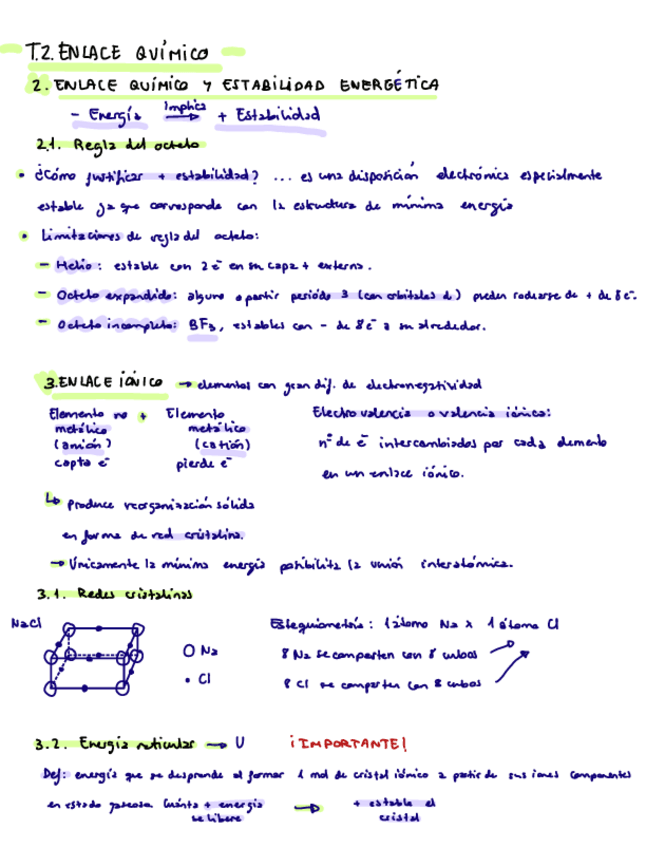 T.2. ENLACE QUÍMICO
2. ENLACE QUÍMICO Y ESTABILIDAD ENERGÉTICA
- Energía implica → + Estabilidad
2.1. Regla del octeto
• ¿Cómo justificar + estabilidad? ... es una disposición electrónica especialmente
estable ya que corresponde con la estructura de mínima energía
• Limitaciones de regla del octeto:
- Helio: estable con 2e⁻ en su capa + externa.
- Octeto expandido: alguno a partir periodo 3 (con orbitales d) pueden rodearse de + de 8e⁻.
- Octeto incompleto: BF₃, estables con - de 8e⁻ a su alrededor.
3. ENLACE IÓNICO → elementos con gran dif. de electronegatividad
Elemento no + Elemento
metálico metálico
(anión) (catión)
capta e⁻ pierde e⁻
Electrovalencia o valencia iónica:
nº de e⁻ intercambiados por cada elemento
en un enlace iónico.
↳ Produce reorganización sólida
en forma de red cristalina.
→ Únicamente la mínima energía posibilita la unión interatómica.
3.1. Redes cristalinas
NaCl
O Na
• Cl
Estequiometría: 1 átomo Na x 1 átomo Cl
8 Na se comparten con 8 cubos
8 Cl se comparten con 8 cubos
3.2. Energía reticular → U ¡IMPORTANTE!
Def: energía que se desprende al formar 1 mol de cristal iónico a partir de sus iones componentes
en estado gaseoso. Cuánta + energía → + estable el
se libere cristal